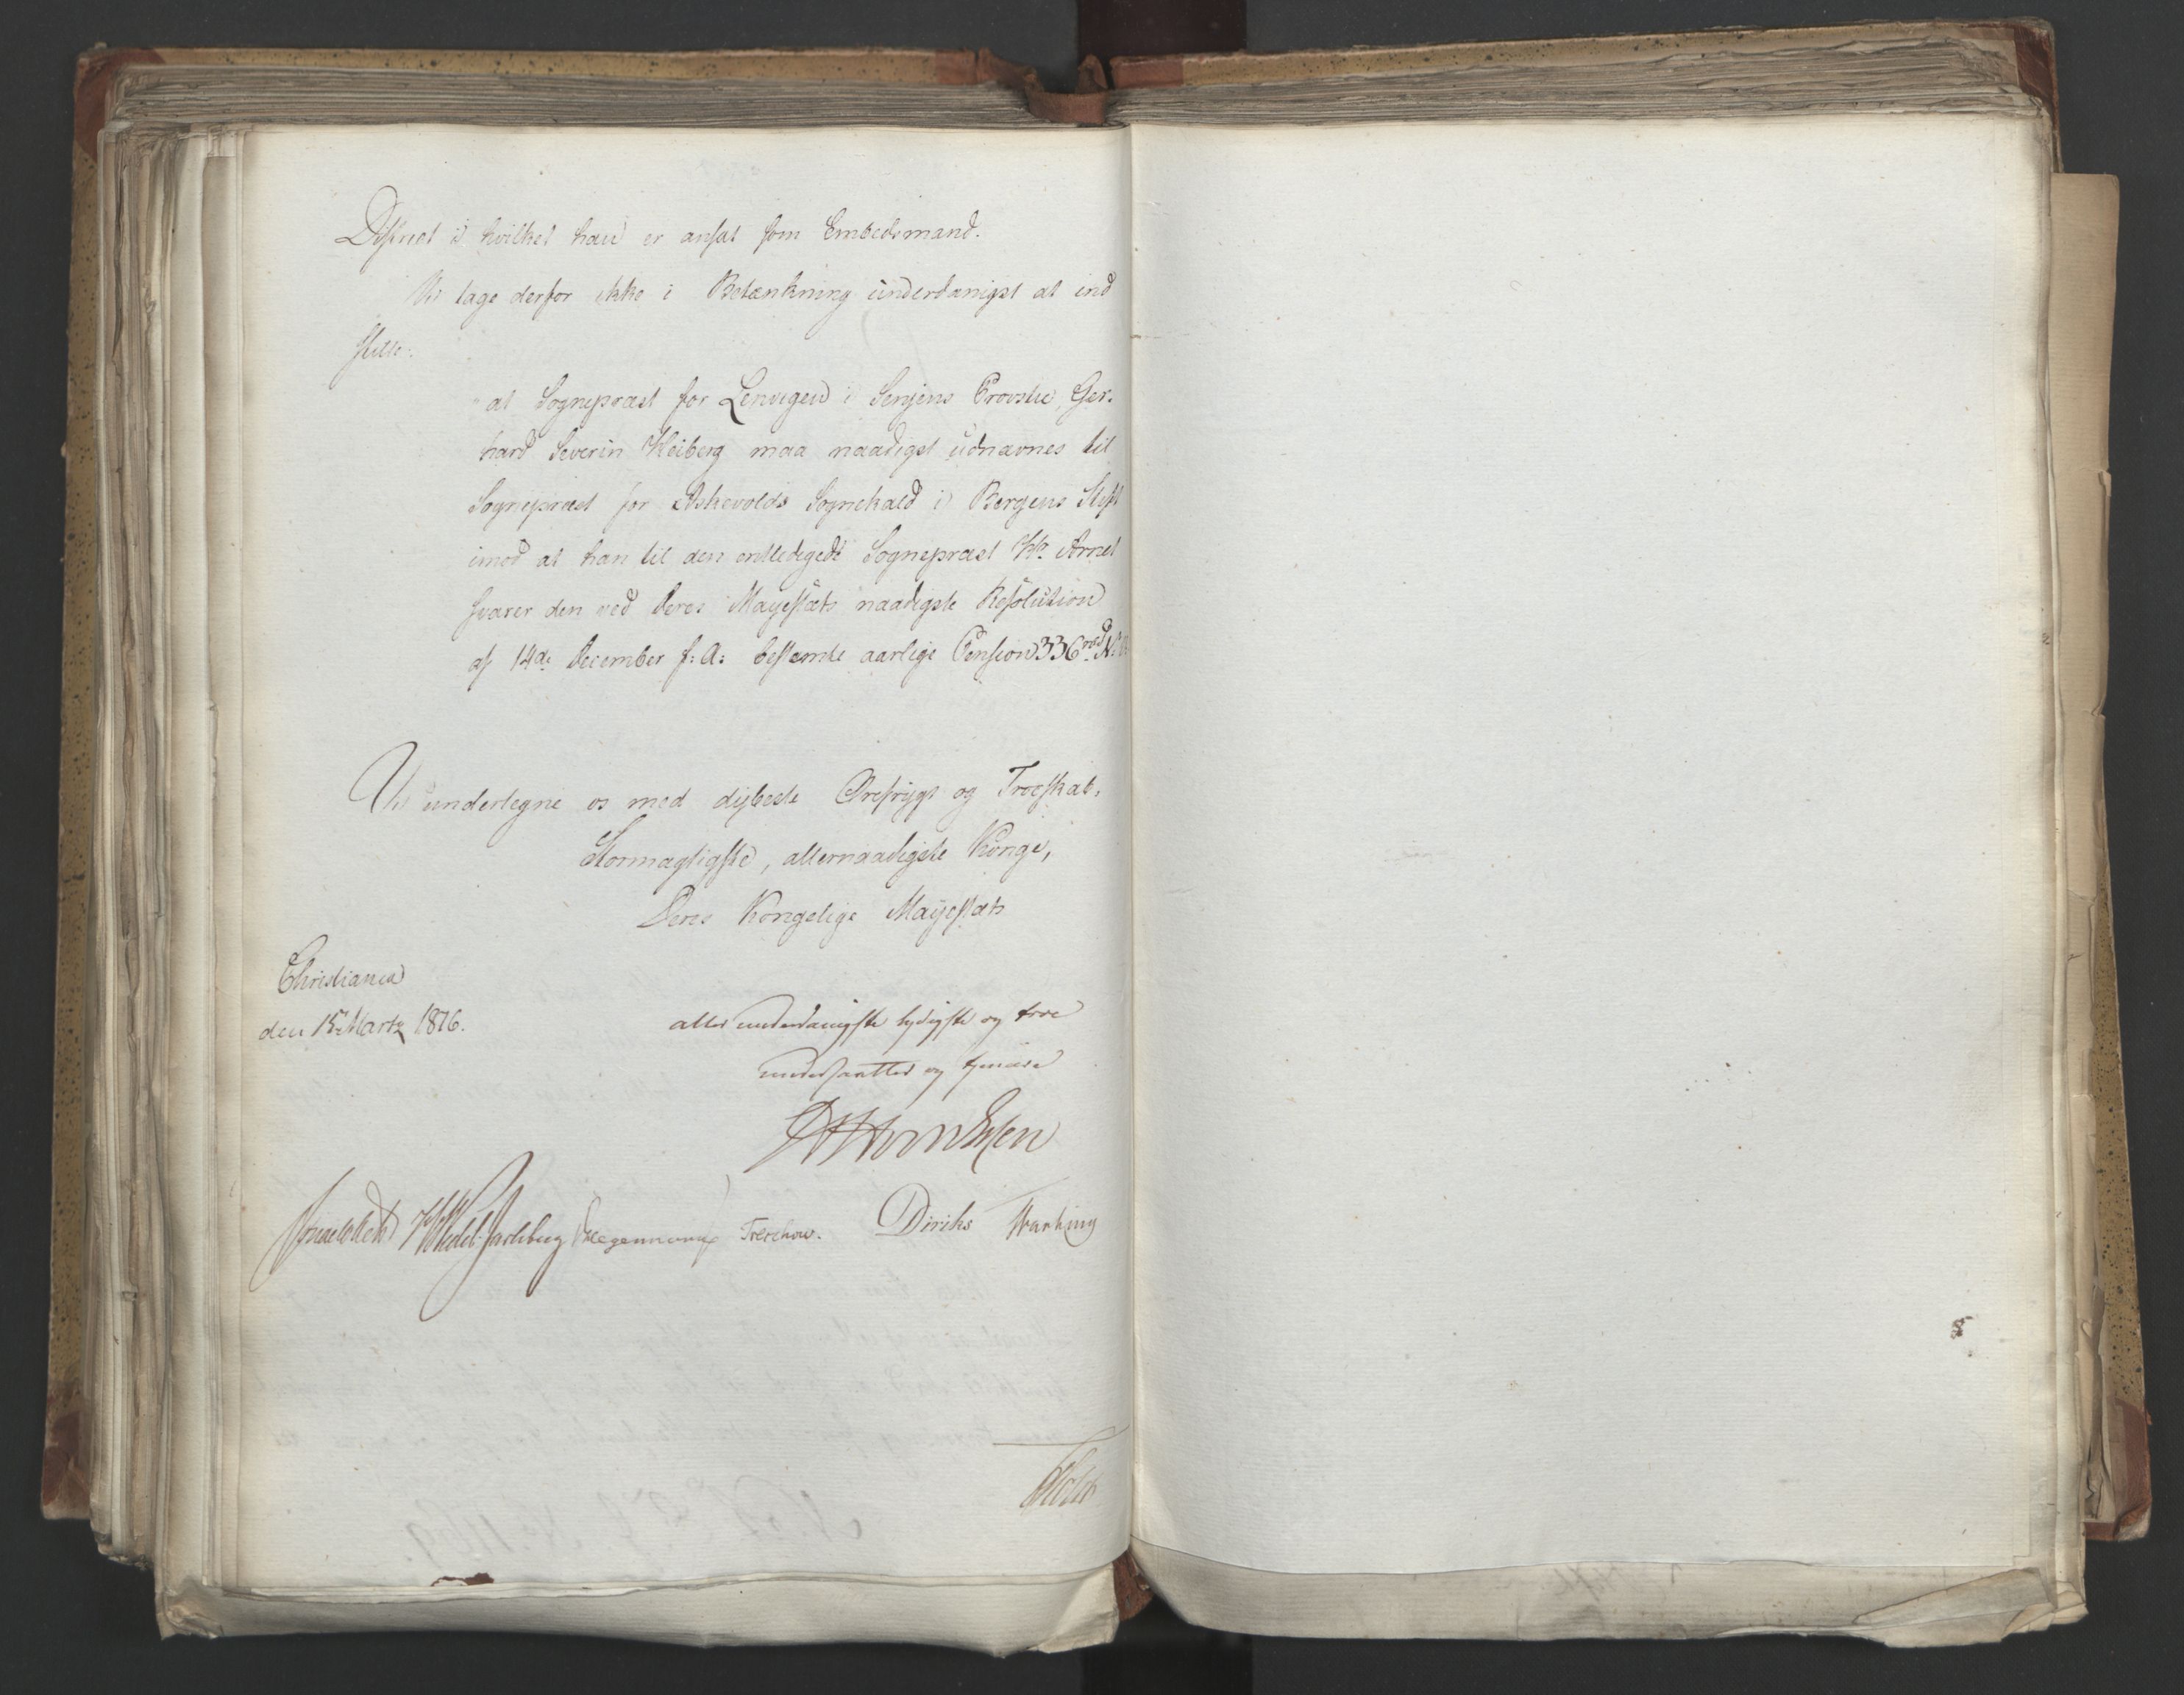 District i hvilket han er ansat som Embedsmand.
Vi tage derfor ikke i Betænkning underdanigst at ind
stille:
at Sognepræst for Lenvigen i Senjens Provstie, Ger-
hard Severin Heiberg maa naadigst udnævnes til
Sognepræst for Askevolds Sognekald i Bergens Stift
imod at han til den entledigede Sognepræst Hr. Arnet
svarer den ved Deres Mayestæts naadigste Resolution
af 14de December f: A: bestemte aarlige Pension 336 rbd N.V.
Vi undertegne os med dybeste Ærefrygt og Troeskab,
Stormægtigste, allernaadigste Konge,
Deres Kongelige Mayestæts
Christiania
den 15 Martz 1816.
allerunderdanigste lydigste og troe
undersaatter og tjenere
Sommerhielm HWedel-Jarlsberg Hegermann Treschow. Diriks
Holst